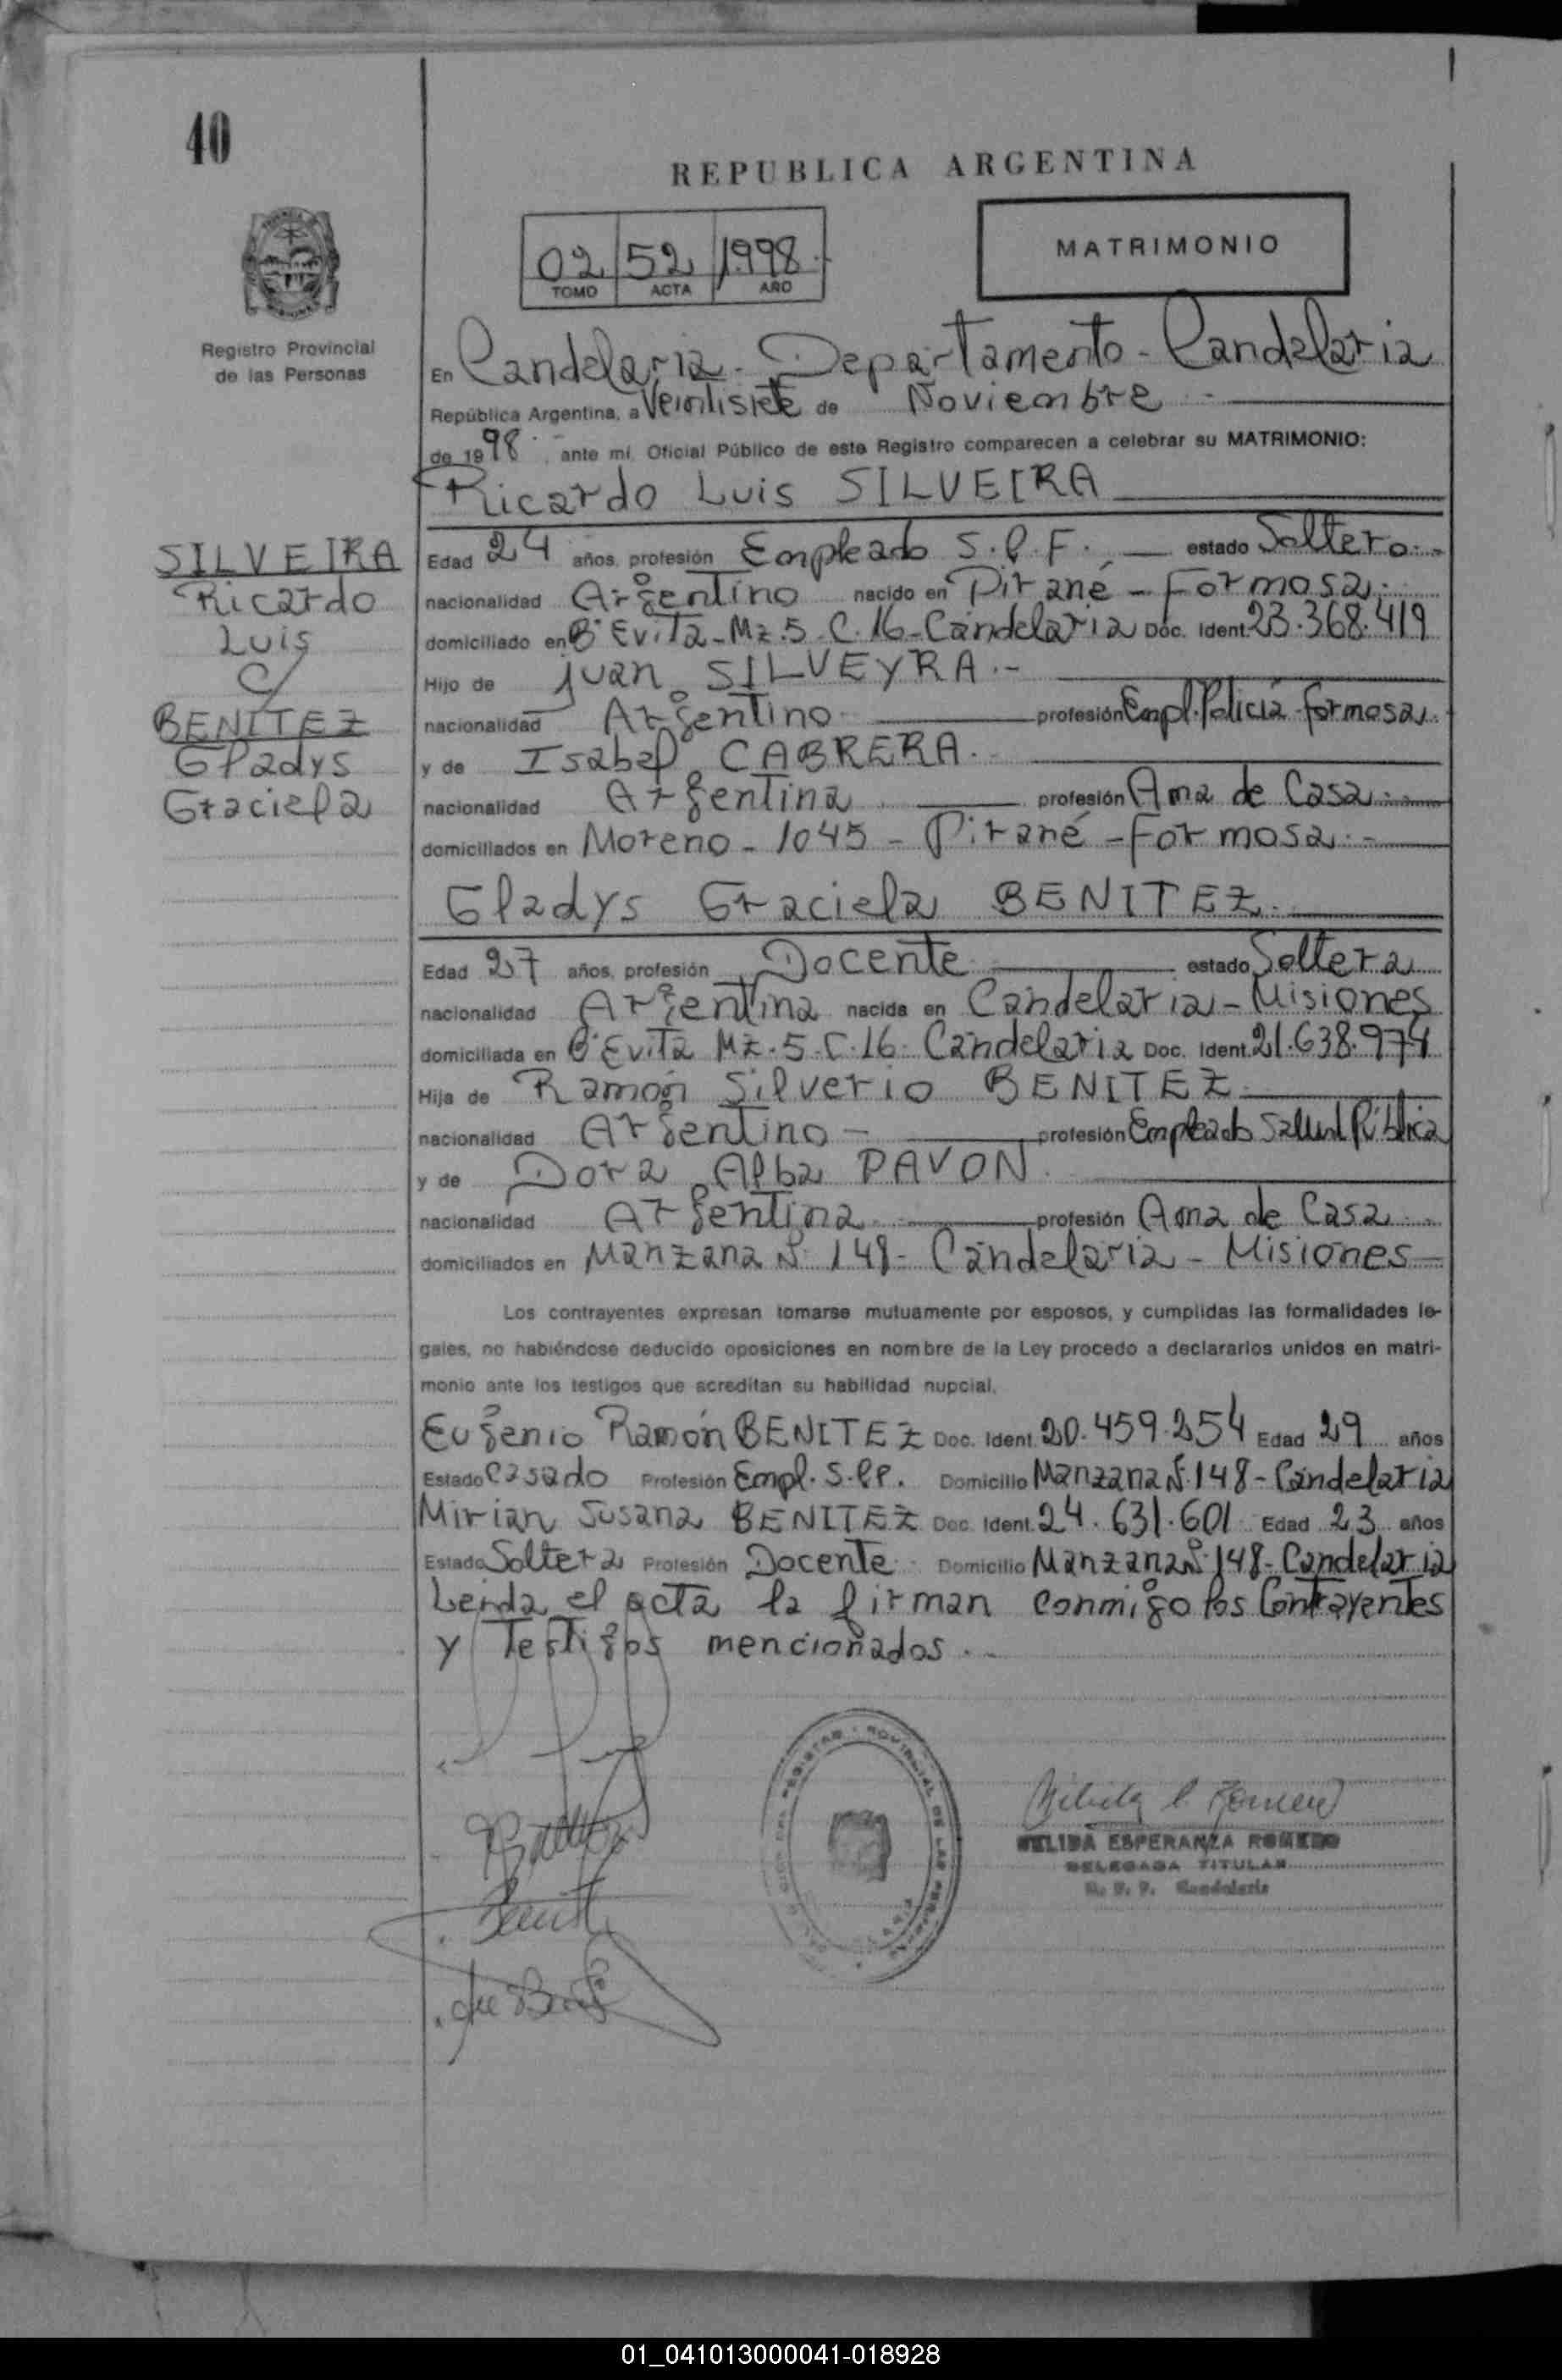 40
REPUBLICA ARGENTINA
02 52 1998.
TOMO ACTA AÑO
MATRIMONIO
Registro Provincial
de las Personas
En Candelaria - Departamento - Candelaria
República Argentina, a Veintisiete de Noviembre
de 1998, ante mí, Oficial Público de este Registro comparecen a celebrar su MATRIMONIO:
Ricardo Luis SILVEIRA
SILVEIRA
Ricardo
Luis
C/
BENITEZ
Gladys
Graciela
Edad 24 años, profesión Empleado S.P.F. estado Soltero.-
nacionalidad Argentino nacido en Pirané - Formosa.-
domiciliado en B° Evita - Mz. 5 - C. 16 - Candelaria Doc. Ident. 23.368.419
Hijo de Juan SILVEYRA.-
nacionalidad Argentino profesión Empl. Policía Formosa.
y de Isabel CABRERA.-
nacionalidad Argentina profesión Ama de Casa.-
domiciliados en Moreno - 1045 - Pirané - Formosa.-
Gladys Graciela BENITEZ.
Edad 27 años, profesión Docente estado Soltera
nacionalidad Argentina nacida en Candelaria - Misiones
domiciliada en B° Evita Mz. 5 - C. 16 - Candelaria Doc. Ident. 21.638.974
Hija de Ramón Silverio BENITEZ
nacionalidad Argentino - profesión Empleado Salud Pública
y de Dora Alba PAVON.
nacionalidad Argentina profesión Ama de Casa.-
domiciliados en Manzana N° 148 - Candelaria - Misiones
Los contrayentes expresan tomarse mutuamente por esposos, y cumplidas las formalidades le-
gales, no habiéndose deducido oposiciones en nombre de la Ley procedo a declararlos unidos en matri-
monio ante los testigos que acreditan su habilidad nupcial.
Eugenio Ramón BENITEZ Doc. Ident. 20.459.254 Edad 29 años
Estado Casado Profesión Empl. S.PP. Domicilio Manzana N° 148 - Candelaria
Mirian Susana BENITEZ Doc. Ident. 24.631.601 Edad 23 años
Estado Soltera Profesión Docente Domicilio Manzana N° 148 - Candelaria
Leida el acta la firman conmigo los Contrayentes
y Testigos mencionados.-
NELIDA ESPERANZA ROMERO
DELEGADA TITULAR
R. P. P. Candelaria
01_041013000041-018928